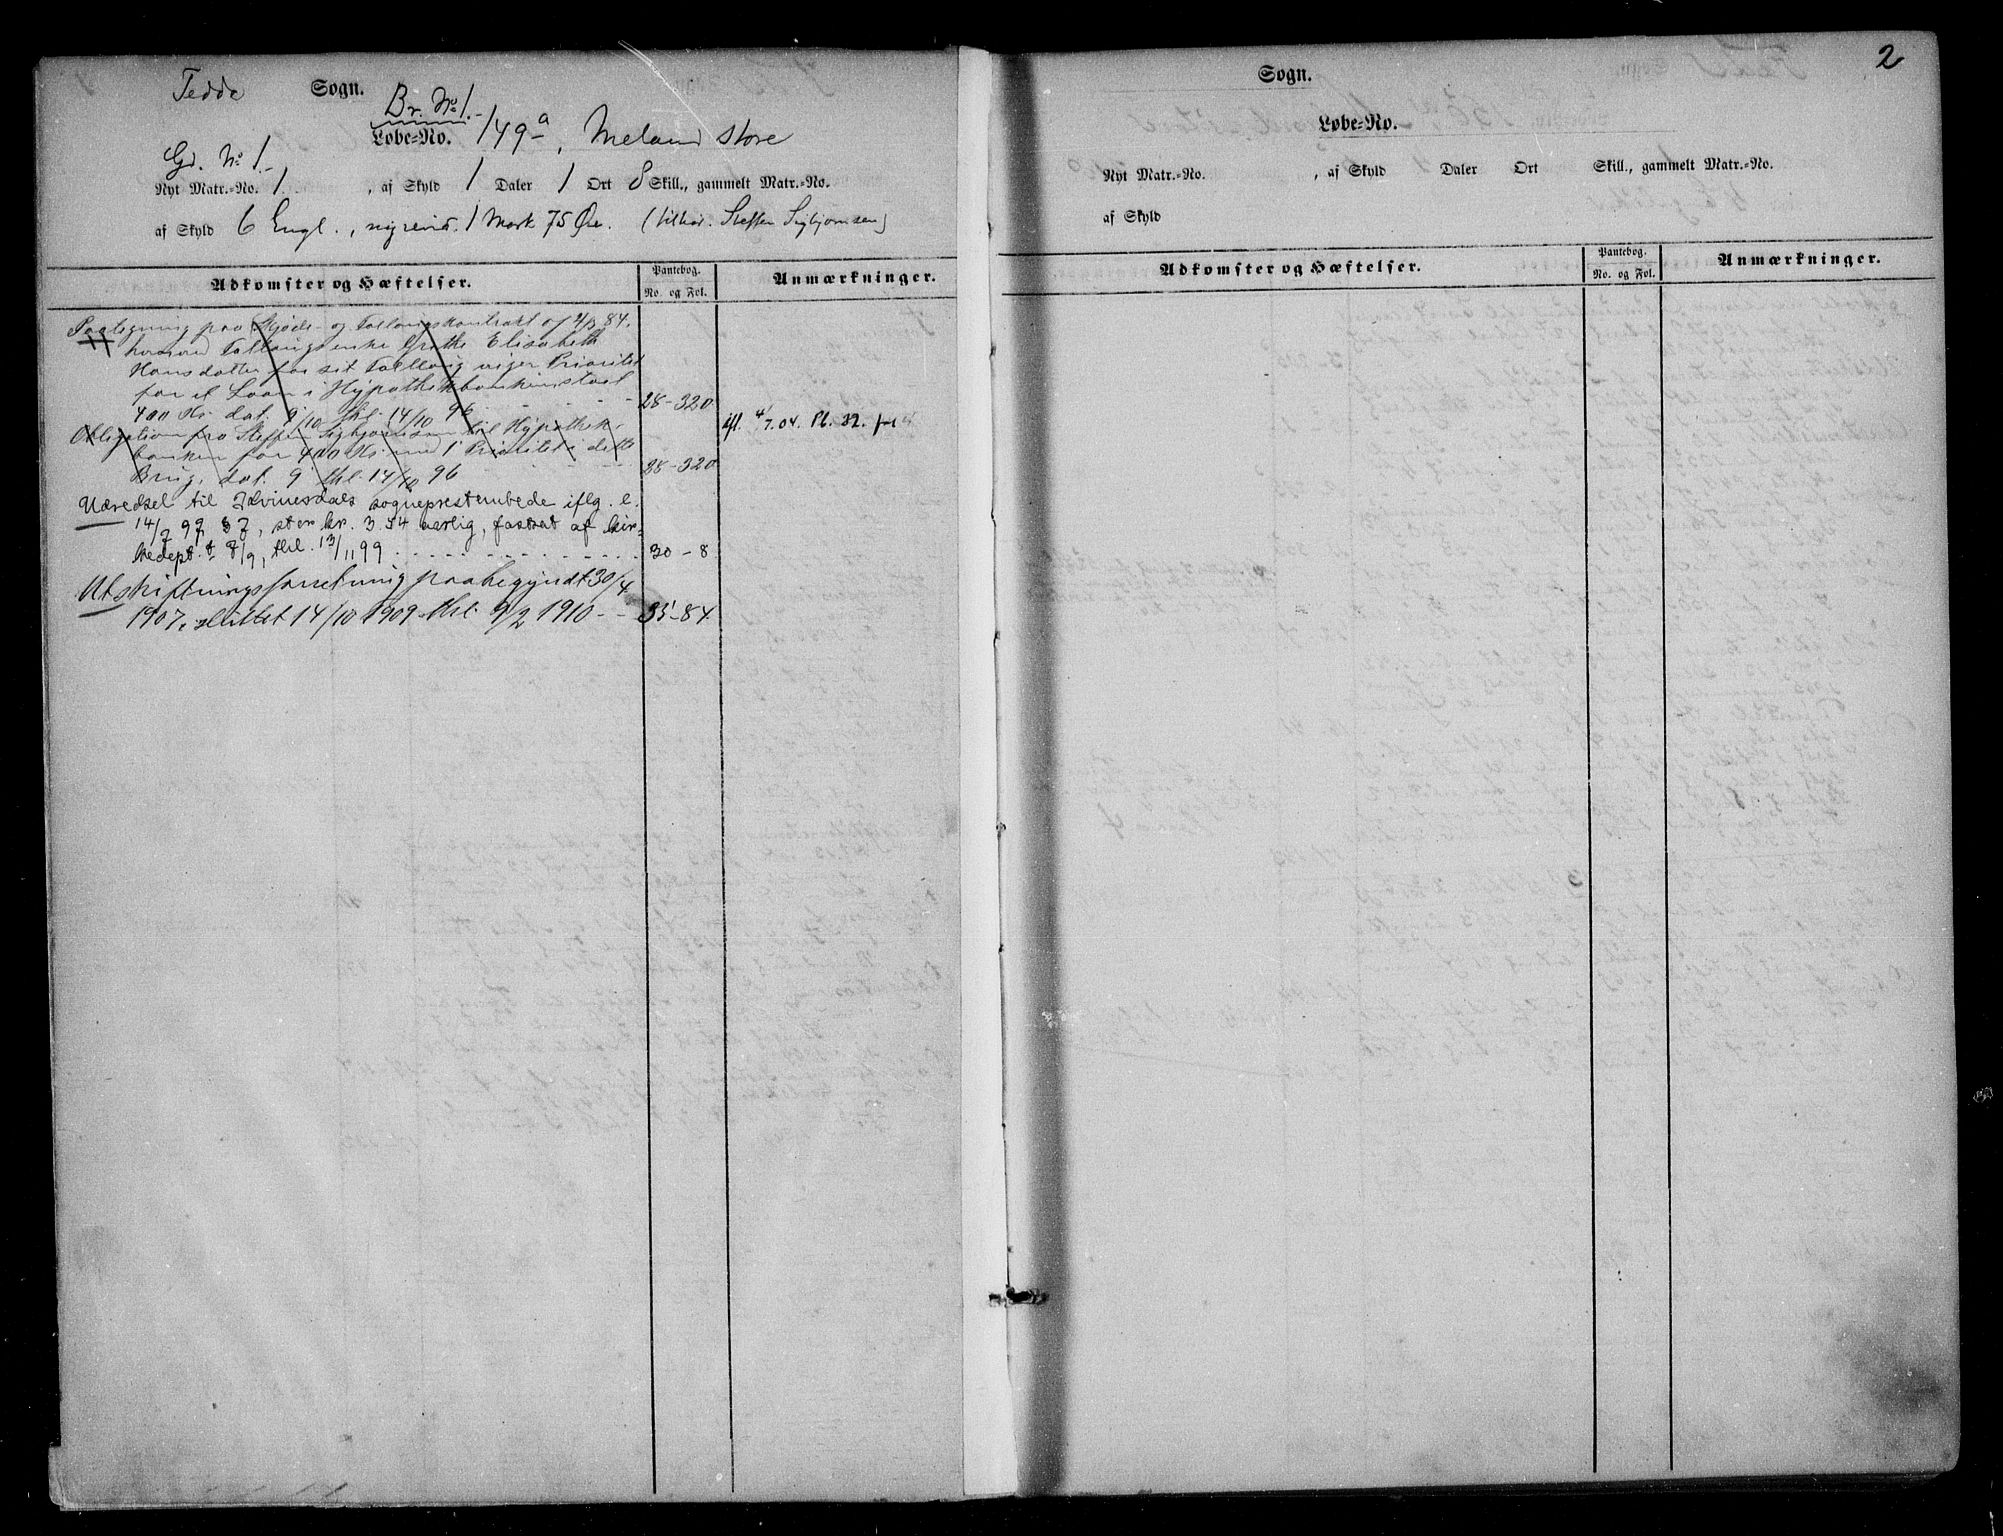 Fedde Sogn.
Br. No 1.
Løbe-No. 149a, Meland store
Gd. No 1.
Nyt Matr.-No. 1. , af Skyld 1 Daler 1 Ort 8 Skill., gammelt Matr.-No.
af Skyld 6 Engl., ny reivd. 1 Mark 75 Øre. (tilhør. Steffen Sigbjørnsen)
Adkomster og Hæftelser.
Pantebog.
No. og Fol.
Anmærkninger.
Paategning paa Skjøde- og Følløugskontrakt af 4/3 84.
hvorved Følløugsenke Grethe Elisabeth
Hansdatter for sit Følløug viger Prioritet
for et Laan i Hypothekbanken stort
400 Kr. dat. 9/10 thl. 14/10 96 28-320
Obligation fra Steffen Sigbjørnsen til Hypothek-
banken for 400 Kr. med 1 Prioritet i dette
Brug, dat. 9 thl. 14/10 96 28-320
afl. 4/7.04. Pb. 32.
Uæredsel til Kvinesdals sogneprestembede iflg. l.
14/7 97 § 7, stor kr. 3.54 aarlig, fastsat af kir-
kedept.t 8/9, thl. 13/11 99 30-8
Utskiftningsforretning paabegyndt 30/4
1907, sluttet 14/10 1909 thl. 9/2 1910 35-84
2
Sogn.
Løbe-No.
Nyt Matr.-No. , af Skyld Daler Ort Skill., gammelt Matr.-No.
af Skyld
Adkomster og Hæftelser.
Pantebog.
No. og Fol.
Anmærkninger.